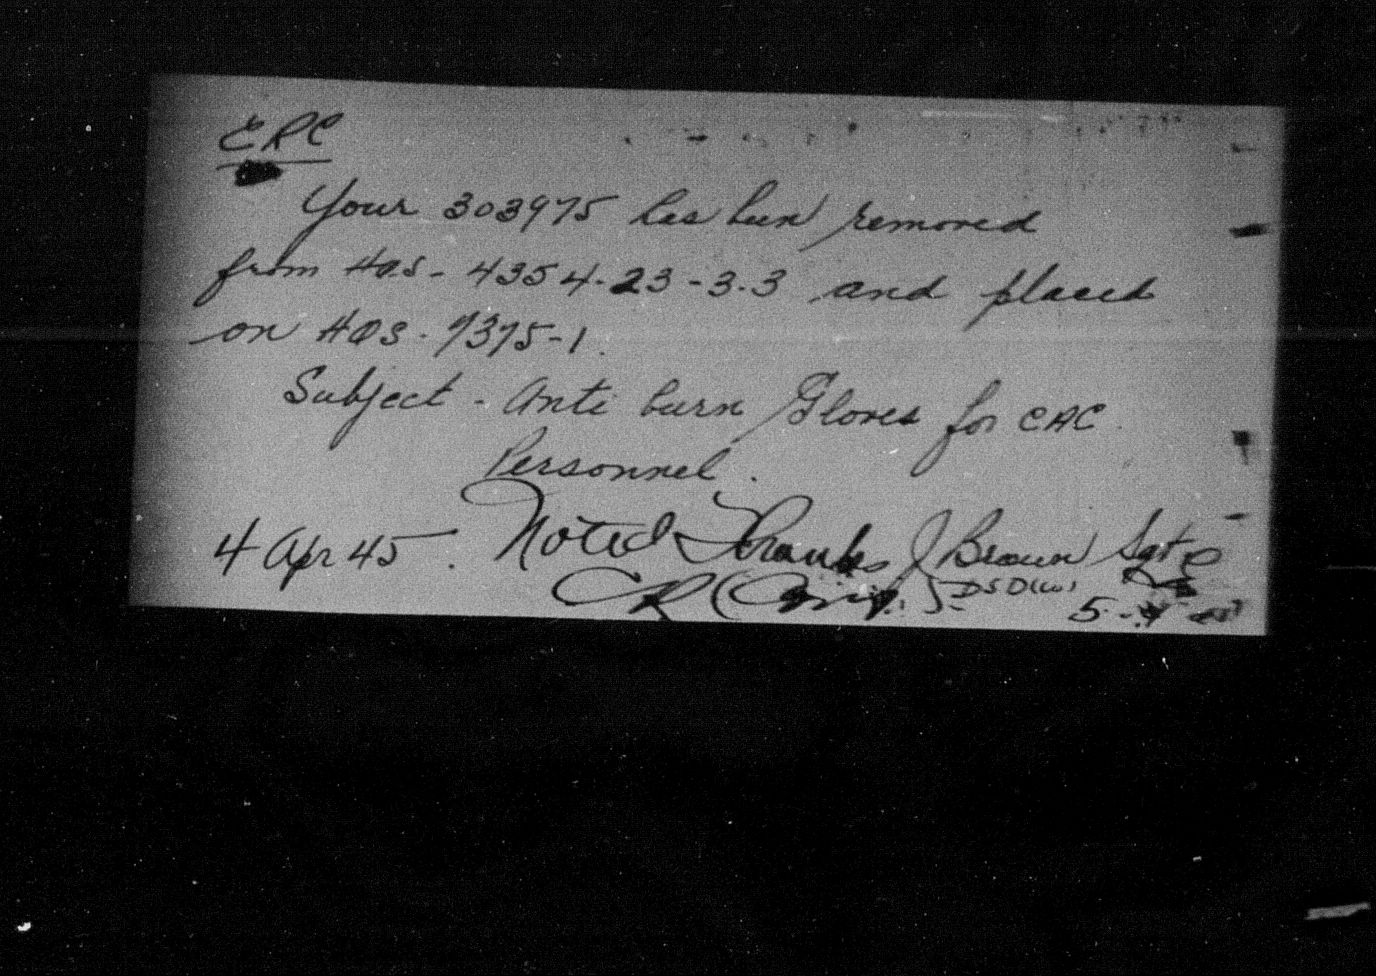 ERC
Your 303975 has been removed
from HQS-4354-23-3-3 and placed
on HQS-7375-1.
Subject - Anti burn Gloves for CAC
Personnel.
4 Apr 45. Noted Thanks J Brown Sgt
DSD(w)
5-4